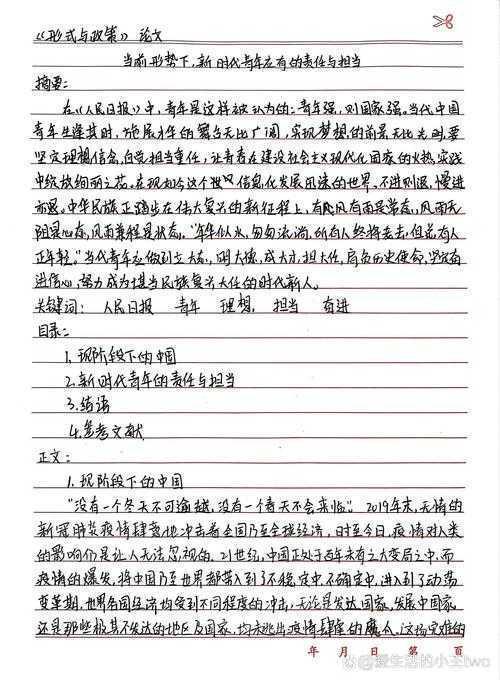 《形式与政策》论文
当前形势下,新时代青年应有的责任与担当
摘要:
在《人民日报》中,青年是这样被认为的:青年强,则国家强。当代中国
青年生逢其时,施展才华的舞台无比广阔,实现梦想的前景无比光明,要
坚定理想信念,自觉担当重任,让青春在建设社会主义现代化国家的火热实践
中绽放绚丽之花。在现如今这个世界信息化发展迅速的世界、不进则退,慢进
亦退。中华民族正踏步在伟大复兴的新征程上,有风有雨是常态,风雨无
阻是心态,风雨兼程是状态。“年年似水,匆匆流淌,所有人终将老去,但总有人
正年轻。”当代青年应做到立大志,明大德,成大才,担大任,肩负历史使命,坚定前
进信心,努力成为堪当民族复兴大任的时代新人。
关键词: 人民日报 青年 理想, 担当 奋进
目录:
1.现阶段下的中国
2.新时代青年的责任与担当
3.结语
4.参考文献
正文:
1.现阶段下的中国
“没有一个冬天不可逾越,没有一个春天不会来临”。2019年末,无情的
新冠肺炎疫情肆虐地冲击着全国乃至全球经济,时至今日,疫情对人类
的影响仍是让人无法忽视的。21世纪,中国正处于百年未有之大变局之中,而
疫情的爆发,将中国乃至世界都带入到了不稳定中,不确定中,进入到了动荡
变革期,世界各国经济均受到不同程度的冲击,无论是发达国家,发展中国家
还是那些极其不发达的地区及国家,均未逃出疫情肆虐的魔爪。这场灾难的
年 月 日 第 页
@爱生活的小王two